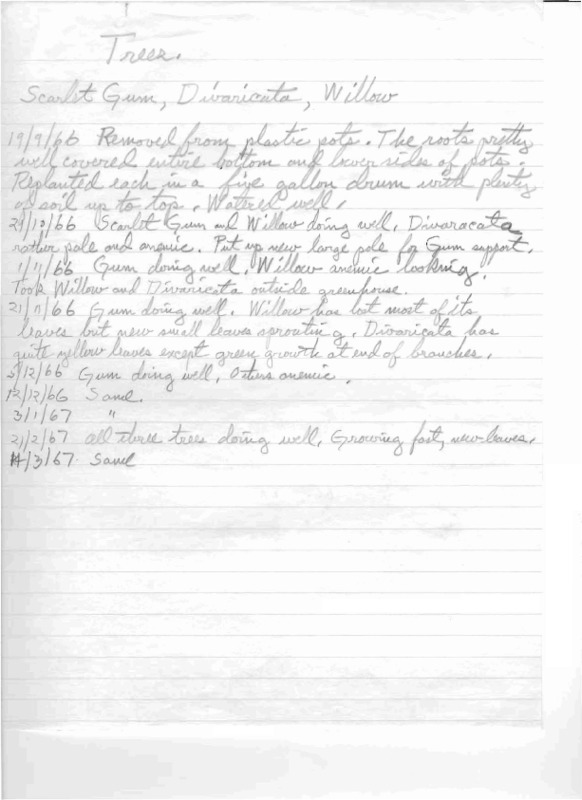 Trees.
Scarlet Gum, Divaricata, Willow
19/9/66 Removed from plastic pots. The roots pretty
well covered entire bottom and lower sides of pots.
Replanted each in a five gallon drum with plenty
of soil up to top. Watered well.
Scarlet Gum and Willow doing well, Divaracata
rather pale and anemic. Put up new large pole for Gum support.
Gum doing well, Willow anemic looking.
Took Willow and Divaricata outside greenhouse.
21/11/66 Gum doing well. Willow has lost most of its
leaves but new small leaves sprouting. Divaricata has
quite yellow leaves except green growth at end of branches.
5/12/66 Gum doing well, Others anemic.
12/12/66 Same.
3/1/67 "
21/2/67 All three trees doing well, Growing fast, new leaves.
14/3/67 Same